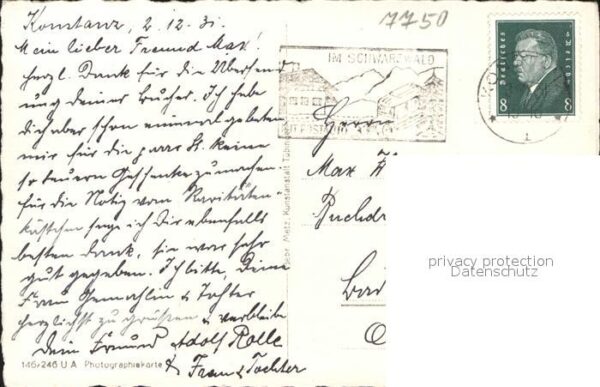 Konstanz, 2.12.31.
7750
Mein lieber Freund Max!
herzl. Dank für die Übersend
ung deiner Bücher. Ich habe
dich aber schon einmal gebeten,
mir für die paar St. keine
so teuern Geschenke zu machen.
für die Notiz vom Raritäten-
kästchen sage ich Dir ebenfalls
besten Dank, sie war sehr
gut gegeben. Ich bitte, Deine
Frau Gemahlin & Tochter
herzlichst zu grüßen & verbleibe
Dein Freund Adolf Rolle
& Frau & Tochter
146/246 U A Photographiekarte
Gebr. Metz, Kunstanstalt, Tübingen
IM SCHWARZWALD
Deutsches Reich
8 8
Herrn
Max
Buchdr
privacy protection
Datenschutz